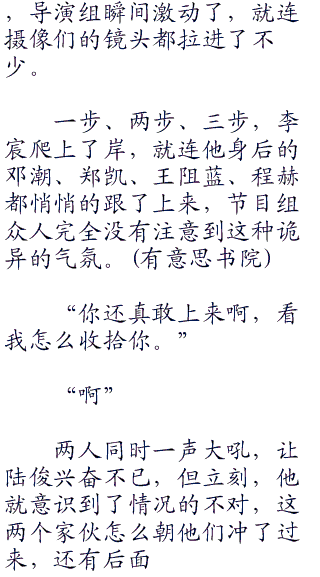 ，导演组瞬间激动了，就连
摄像们的镜头都拉进了不
少。
一步、两步、三步，李
宸爬上了岸，就连他身后的
邓潮、郑凯、王阻蓝、程赫
都悄悄的跟了上来，节目组
众人完全没有注意到这种诡
异的气氛。(有意思书院)
“你还真敢上来啊，看
我怎么收拾你。”
“啊”
两人同时一声大吼，让
陆俊兴奋不已，但立刻，他
就意识到了情况的不对，这
两个家伙怎么朝他们冲了过
来，还有后面